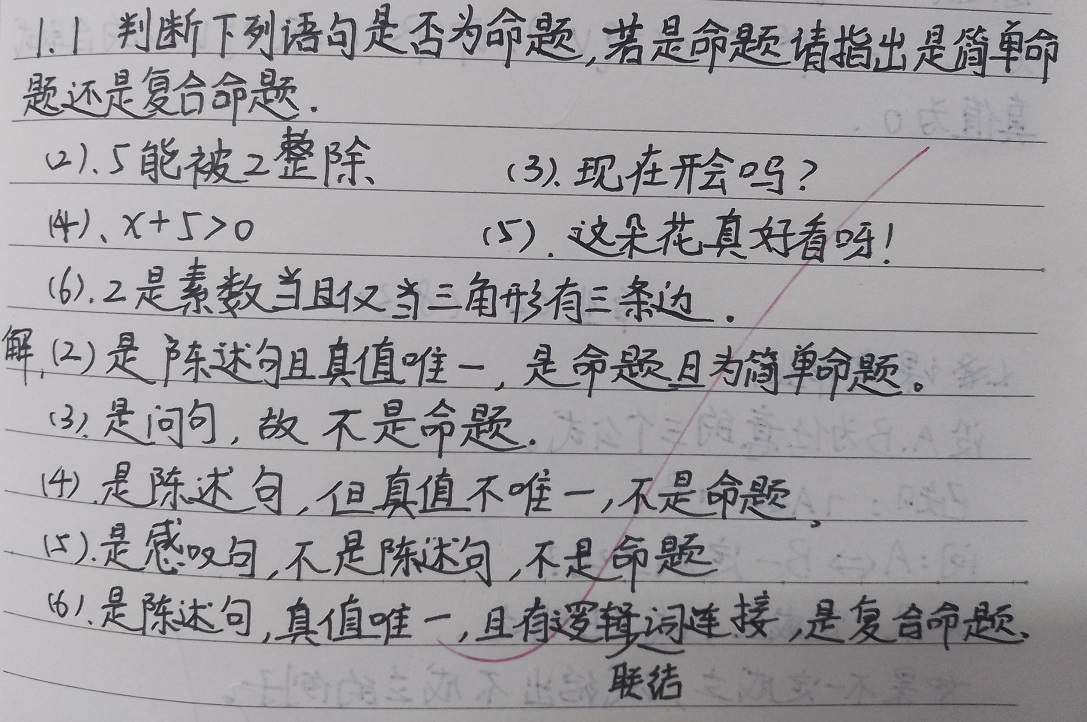 1.1 判断下列语句是否为命题,若是命题请指出是简单命
题还是复合命题.
(2).5能被2整除 (3).现在开会吗?
(4)、x+5>0 (5).这朵花真好看呀!
(6).2是素数当且仅当三角形有三条边.
解,(2)是陈述句且真值唯一,是命题且为简单命题。
(3).是问句,故不是命题.
(4).是陈述句,但真值不唯一,不是命题、
(5).是感叹句,不是陈述句,不是命题
(6).是陈述句,真值唯一,且有逻辑词连接,是复合命题、
联结